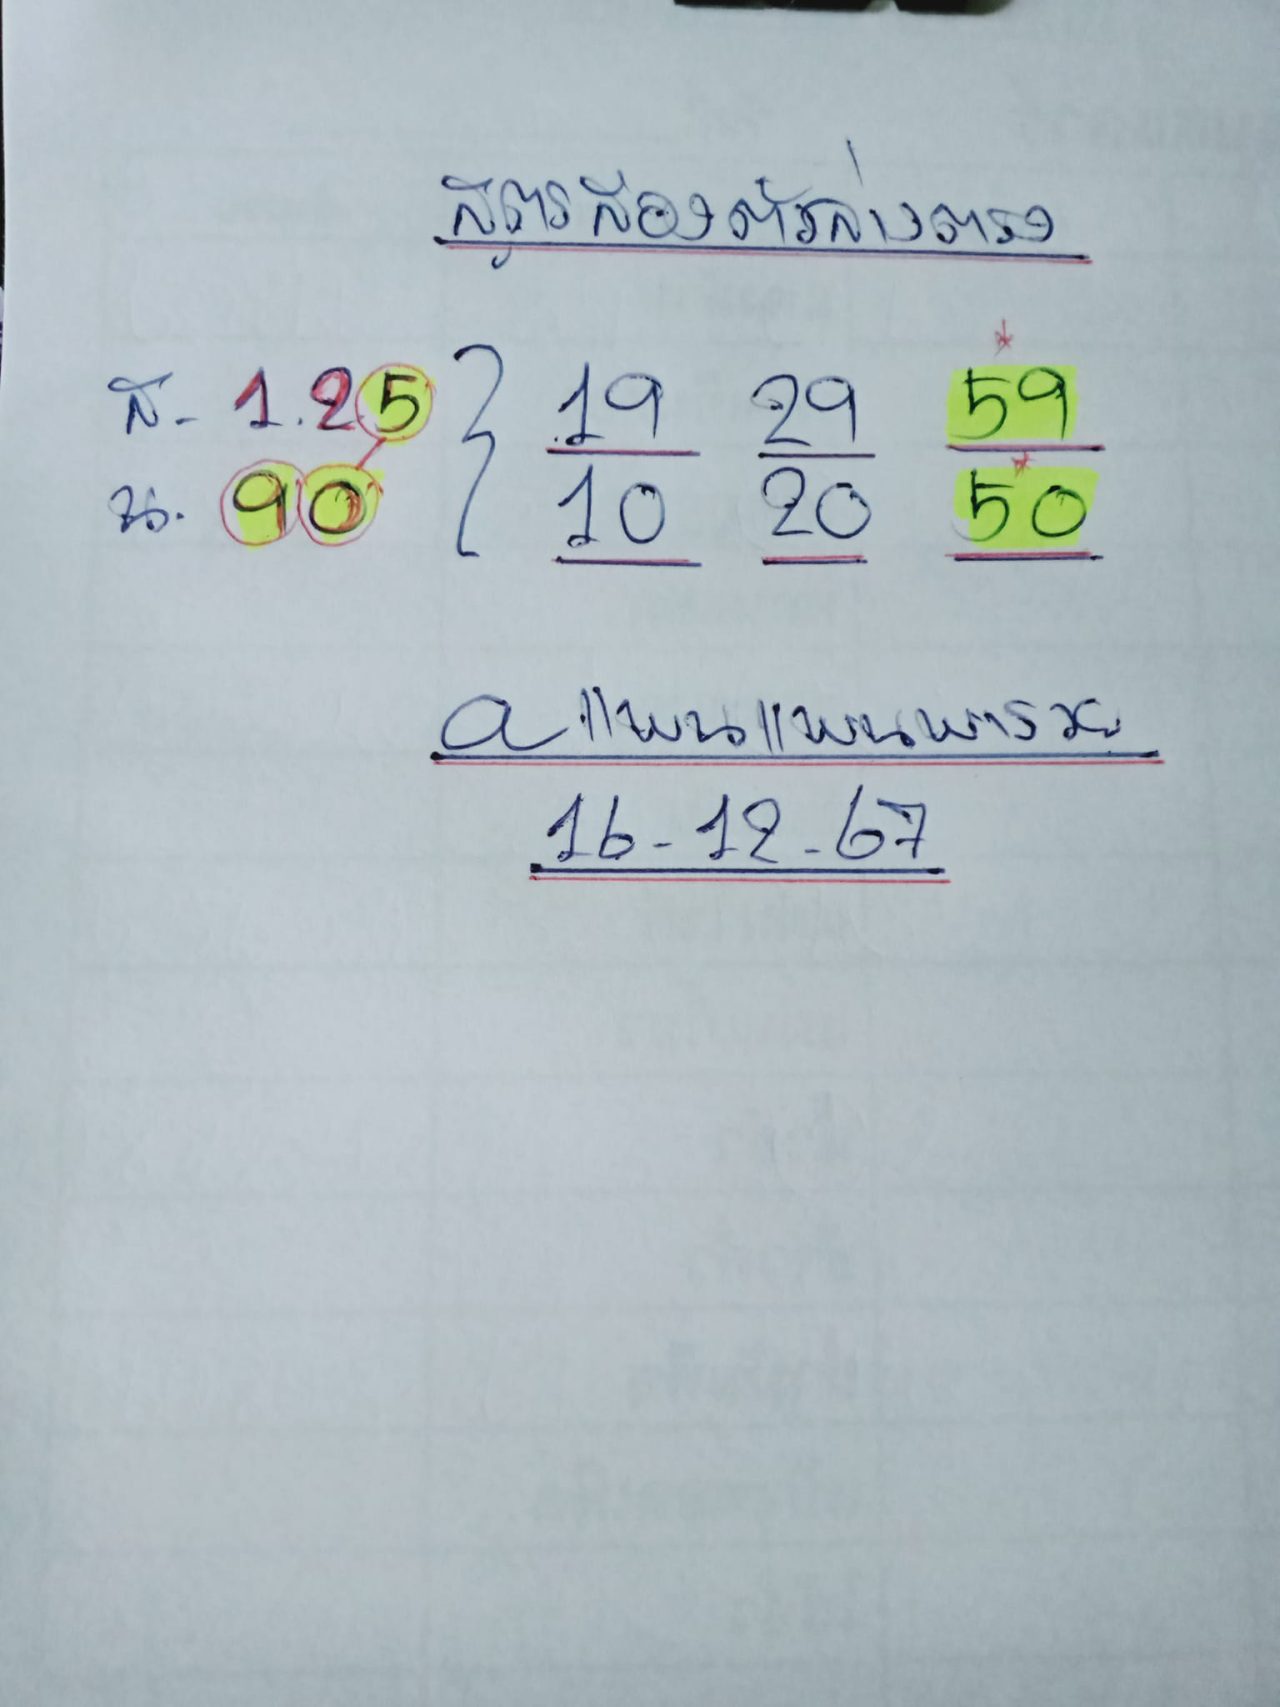 สูตรสองตัวล่างตรง
ส- 1.2.5 } 19 29 59
น. 90 10 20 50
a แพนแพนพารวย
16-12-67